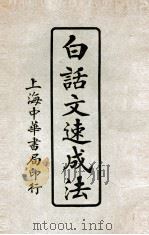 白話文速成法
上海中華書局印行
www.mtoou.info